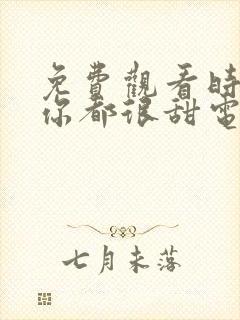 免費觀看時
你都很甜電
七月未落